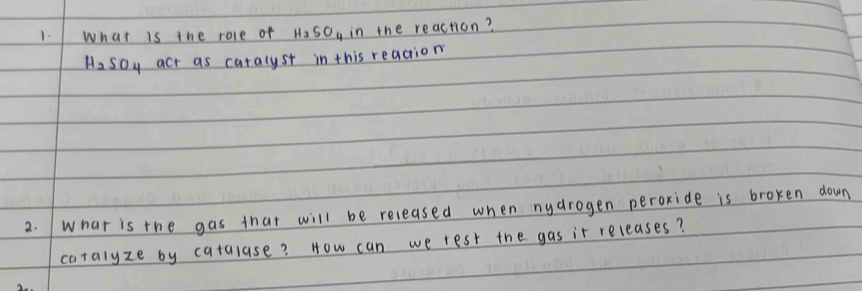 1. What is the role of H2SO4 in the reaction?
H2SO4 act as catalyst in this reaction
2. What is the gas that will be released when hydrogen peroxide is broken down
catalyze by catalase? How can we test the gas it releases?